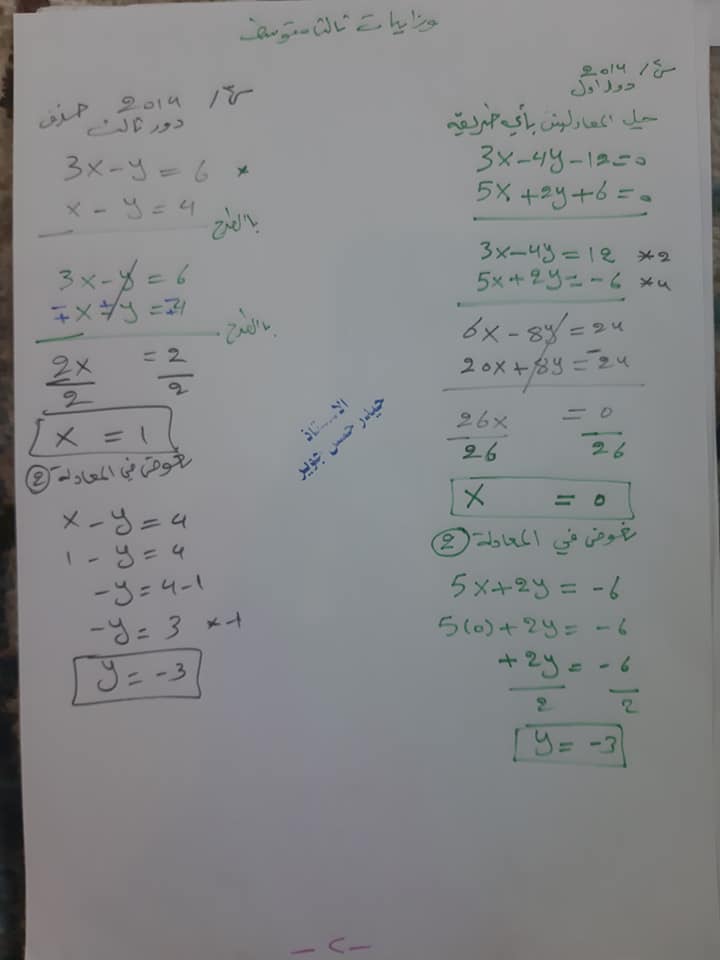 وزاريات ثالث متوسط
س/ 2014
دور اول
حل المعادلتين بأي طريقة
3x-4y-12=0
5x+2y+6=0
3x-4y=12 *2
5x+2y=-6 *4
6x-8y=24
20x+8y=-24
26x = 0
26 26
x = 0
نعوض في المعادلة 2
5x+2y=-6
5(0)+2y=-6
+2y=-6
2 2
y=-3
س/ 2014 حذف
دور ثالث
3x-y=6 *
x-y=4
بالطرح
3x-y=6
∓x±y=∓4
بالطرح
2x =2
2 2
x = 1
نعوض في المعادلة 2
x-y=4
1-y=4
-y=4-1
-y=3 *-1
y=-3
الاستاذ
حيدر حسن جوير
-2-